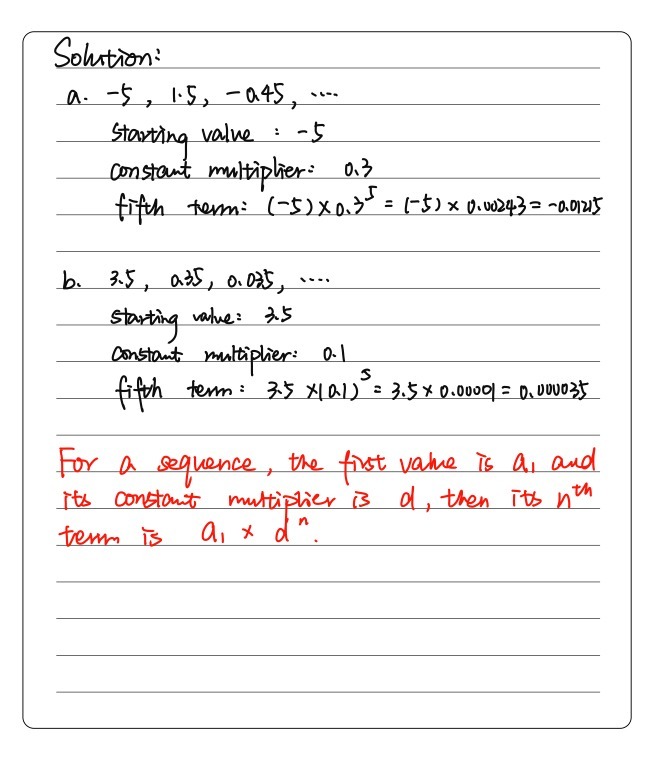 Solution:
a. -5, 1.5, -0.45, ....
starting value: -5
constant multiplier: 0.3
fifth term: (-5)×0.3^5 = (-5) × 0.00243 = -0.01215
b. 3.5, 0.35, 0.035, ....
starting value: 3.5
constant multiplier: 0.1
fifth term: 3.5 ×(0.1)^5 = 3.5 × 0.00001 = 0.000035
For a sequence, the first value is a₁ and
its constant multiplier is d, then its n^th
term is a₁ × d^n.